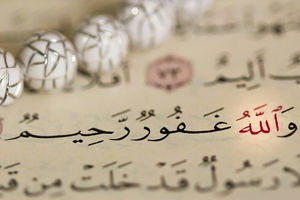 أَلِيمٌ ٧٣
وَٱللَّهُ غَفُورٌ رَّحِيمٌ
رَسُولٌ قَدْ خَلَتْ مِن